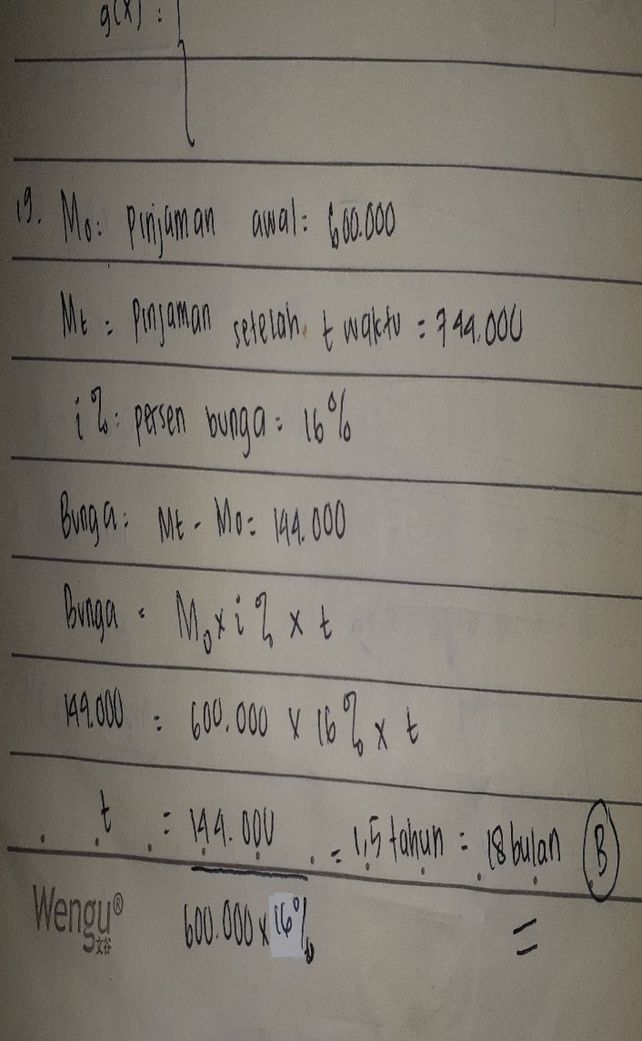 g(x) :
19. Mo: Pinjaman awal: 600.000
Mt = Pinjaman setelah t waktu = 744.000
i%: persen bunga: 16%
Bunga: Mt - Mo= 144.000
Bunga = Mo x i% x t
144.000 = 600.000 x 16% x t
t = 144.000 = 1,5 tahun = 18 bulan B
600.000 x 16%
Wengu®
文谷